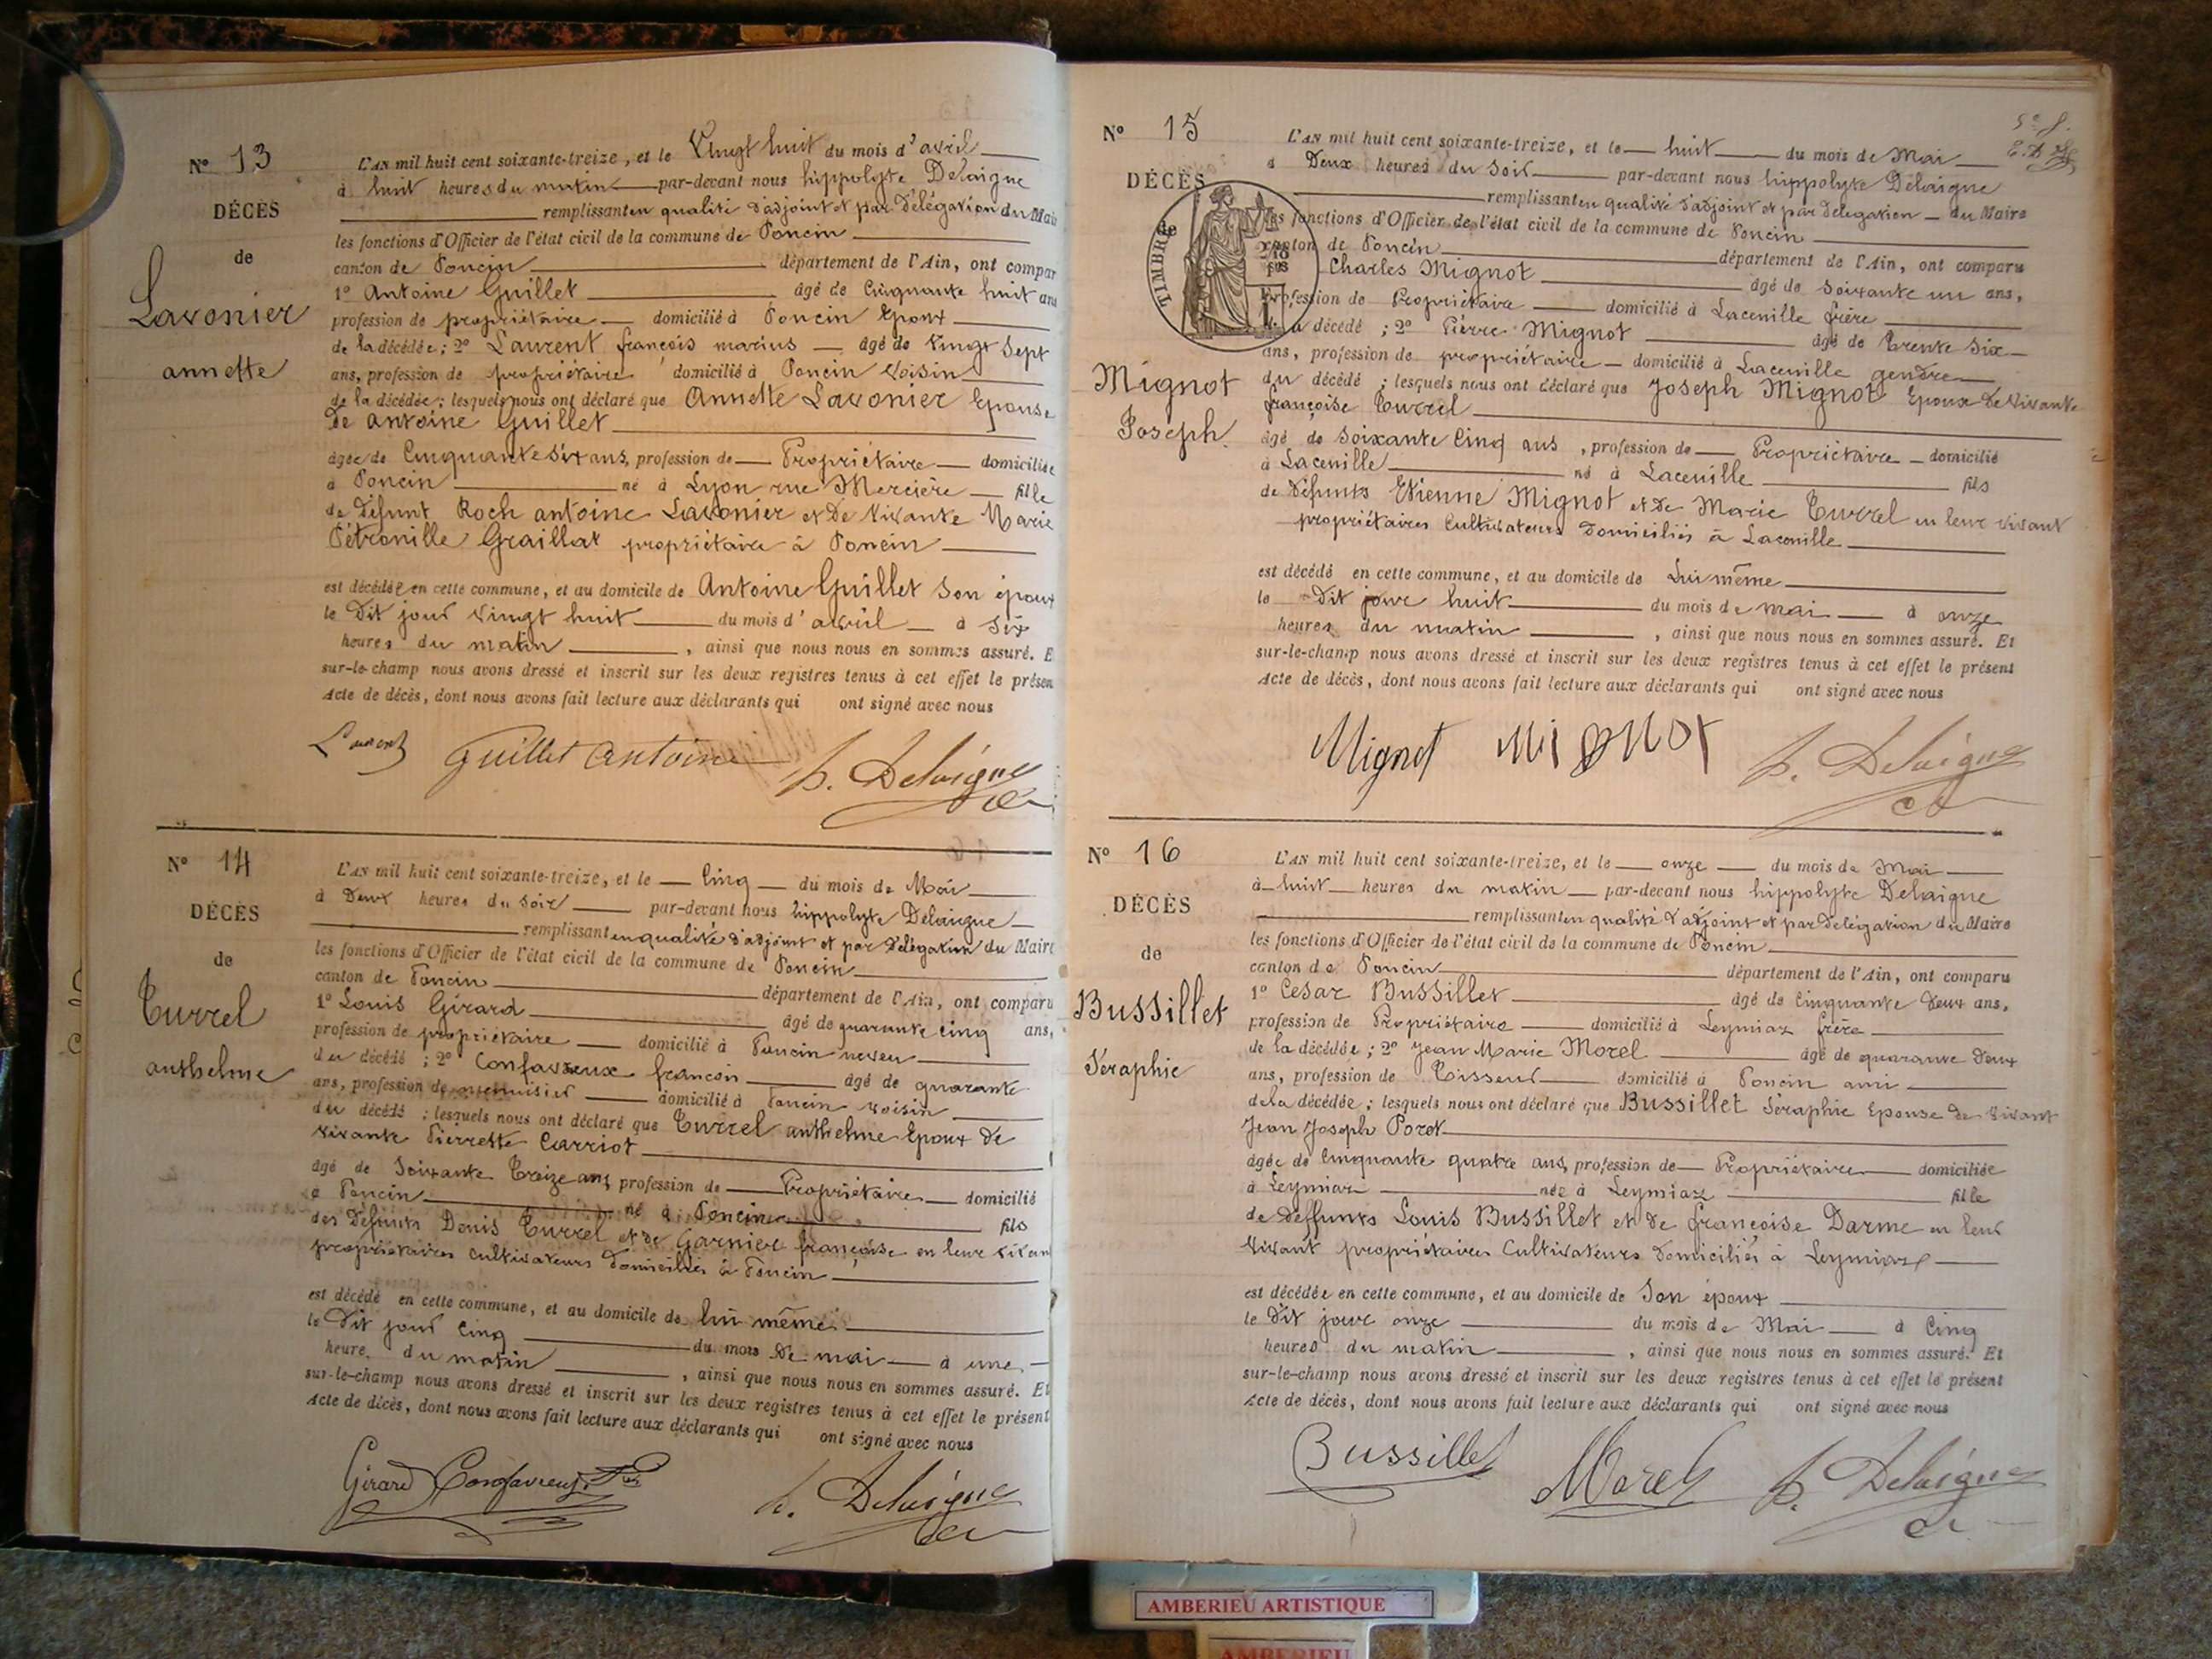 N° 13
DÉCÈS
de
Lavonier
annette
L'AN mil huit cent soixante-treize, et le Vingt huit du mois d'avril
à huit heures du matin par-devant nous hippolyte Delaigne
remplissant en qualité d'adjoint et par Délégation du Mair
les fonctions d'Officier de l'état civil de la commune de Poncin
canton de Poncin département de l'Ain, ont compar
1° Antoine Guillet âgé de Cinquante huit ans
profession de propriétaire domicilié à Poncin Epoux
de la décédée; 2° Laurent françois marius âgé de Vingt Sept
ans, profession de propriétaire domicilié à Poncin Voisin
de la décédée; lesquels nous ont déclaré que Annette Lavonier Epouse
De antoine Guillet
âgée de Cinquante six ans, profession de Propriétaire domiciliée
à Poncin né à Lyon rue Mercière fille
de défunt Roch antoine Lavonier et De Vivante Marie
Pétronille Graillat propriétaire à Poncin
est décédée en cette commune, et au domicile de Antoine Guillet Son époux
le Dit jour Vingt huit du mois d'avril à Six
heures du matin, ainsi que nous nous en sommes assuré. E
sur-le-champ nous avons dressé et inscrit sur les deux registres tenus à cet effet le présen
Acte de décès, dont nous avons fait lecture aux déclarants qui ont signé avec nous
Laurent Guillet Antoine h. Delaigne
N° 14
DÉCÈS
de
Turrel
anthelme
L'AN mil huit cent soixante-treize, et le Cinq du mois de Mai
à Deux heures du Soir par-devant nous hippolyte Delaigne
remplissant en qualité d'adjoint et par Délégation du Maire
les fonctions d'Officier de l'état civil de la commune de Poncin
canton de Poncin département de l'Ain, ont comparu
1° Louis Girard âgé de quarante cinq ans,
profession de propriétaire domicilié à Poncin neveu
du décédé; 2° Confavreux françois âgé de quarante
ans, profession de menuisier domicilié à Poncin voisin
du décédé; lesquels nous ont déclaré que Turrel anthelme Epoux De
Vivante Pierrette Carriot
âgé de Soixante Treize ans, profession de Propriétaire domicilié
à Poncin né à Poncin fils
des Défunts Denis Turrel et de Garnier françoise en leur vivan
propriétaires cultivateurs Domiciliés à Poncin
est décédé en cette commune, et au domicile de lui même
le Dit jour Cinq du mois De mai à une
heure du matin, ainsi que nous nous en sommes assuré. Et
sur-le-champ nous avons dressé et inscrit sur les deux registres tenus à cet effet le présent
Acte de décès, dont nous avons fait lecture aux déclarants qui ont signé avec nous
Girard Confavreux h. Delaigne
N° 15
DÉCÈS
de
TIMBRE
Mignot
Joseph
L'AN mil huit cent soixante-treize, et le huit du mois de Mai
à Deux heures du Soir par-devant nous hippolyte Delaigne
remplissant en qualité d'adjoint et par Délégation du Maire
les fonctions d'Officier de l'état civil de la commune de Poncin
canton de Poncin département de l'Ain, ont comparu
Charles Mignot âgé de Soixante un ans,
profession de Propriétaire domicilié à Lacenille frère
du décédé; 2° Pierre Mignot âgé de Trente Six
ans, profession de propriétaire domicilié à Lacenille gendre
du décédé; lesquels nous ont déclaré que Joseph Mignot Epoux De Vivante
françoise Turrel
âgé de Soixante Cinq ans, profession de Propriétaire domicilié
à Lacenille né à Lacenille fils
de Défunts Etienne Mignot et De Marie Turrel en leur vivant
propriétaires Cultivateurs Domiciliés à Lacenille
est décédé en cette commune, et au domicile de Lui même
le Dit jour huit du mois de mai à onze
heures du matin, ainsi que nous nous en sommes assuré. Et
sur-le-champ nous avons dressé et inscrit sur les deux registres tenus à cet effet le présent
Acte de décès, dont nous avons fait lecture aux déclarants qui ont signé avec nous
Mignot Mignot h. Delaigne
N° 16
DÉCÈS
de
Bussillet
Séraphie
L'AN mil huit cent soixante-treize, et le onze du mois de Mai
à huit heures du matin par-devant nous hippolyte Delaigne
remplissant en qualité d'adjoint et par Délégation du Maire
les fonctions d'Officier de l'état civil de la commune de Poncin
canton de Poncin département de l'Ain, ont comparu
1° Cesar Bussillet âgé de Cinquante Deux ans,
profession de Propriétaire domicilié à Leymiaz frère
de la décédée; 2° Jean Marie Morel âgé de quarante Deux
ans, profession de Tisseur domicilié à Poncin ami
de la décédée; lesquels nous ont déclaré que Bussillet Séraphie Epouse de Vivant
Jean Joseph Poret
âgée de Cinquante quatre ans, profession de Propriétaire domiciliée
à Leymiaz née à Leymiaz fille
de deffunts Louis Bussillet et de françoise Darme en leur
Vivant propriétaires Cultivateurs Domiciliés à Leymiaz
est décédée en cette commune, et au domicile de Son époux
le Dit jour onze du mois de Mai à Cinq
heures du matin, ainsi que nous nous en sommes assuré. Et
sur-le-champ nous avons dressé et inscrit sur les deux registres tenus à cet effet le présent
Acte de décès, dont nous avons fait lecture aux déclarants qui ont signé avec nous
Bussillet Morel h. Delaigne
AMBERIEU ARTISTIQUE
AMBERIEU